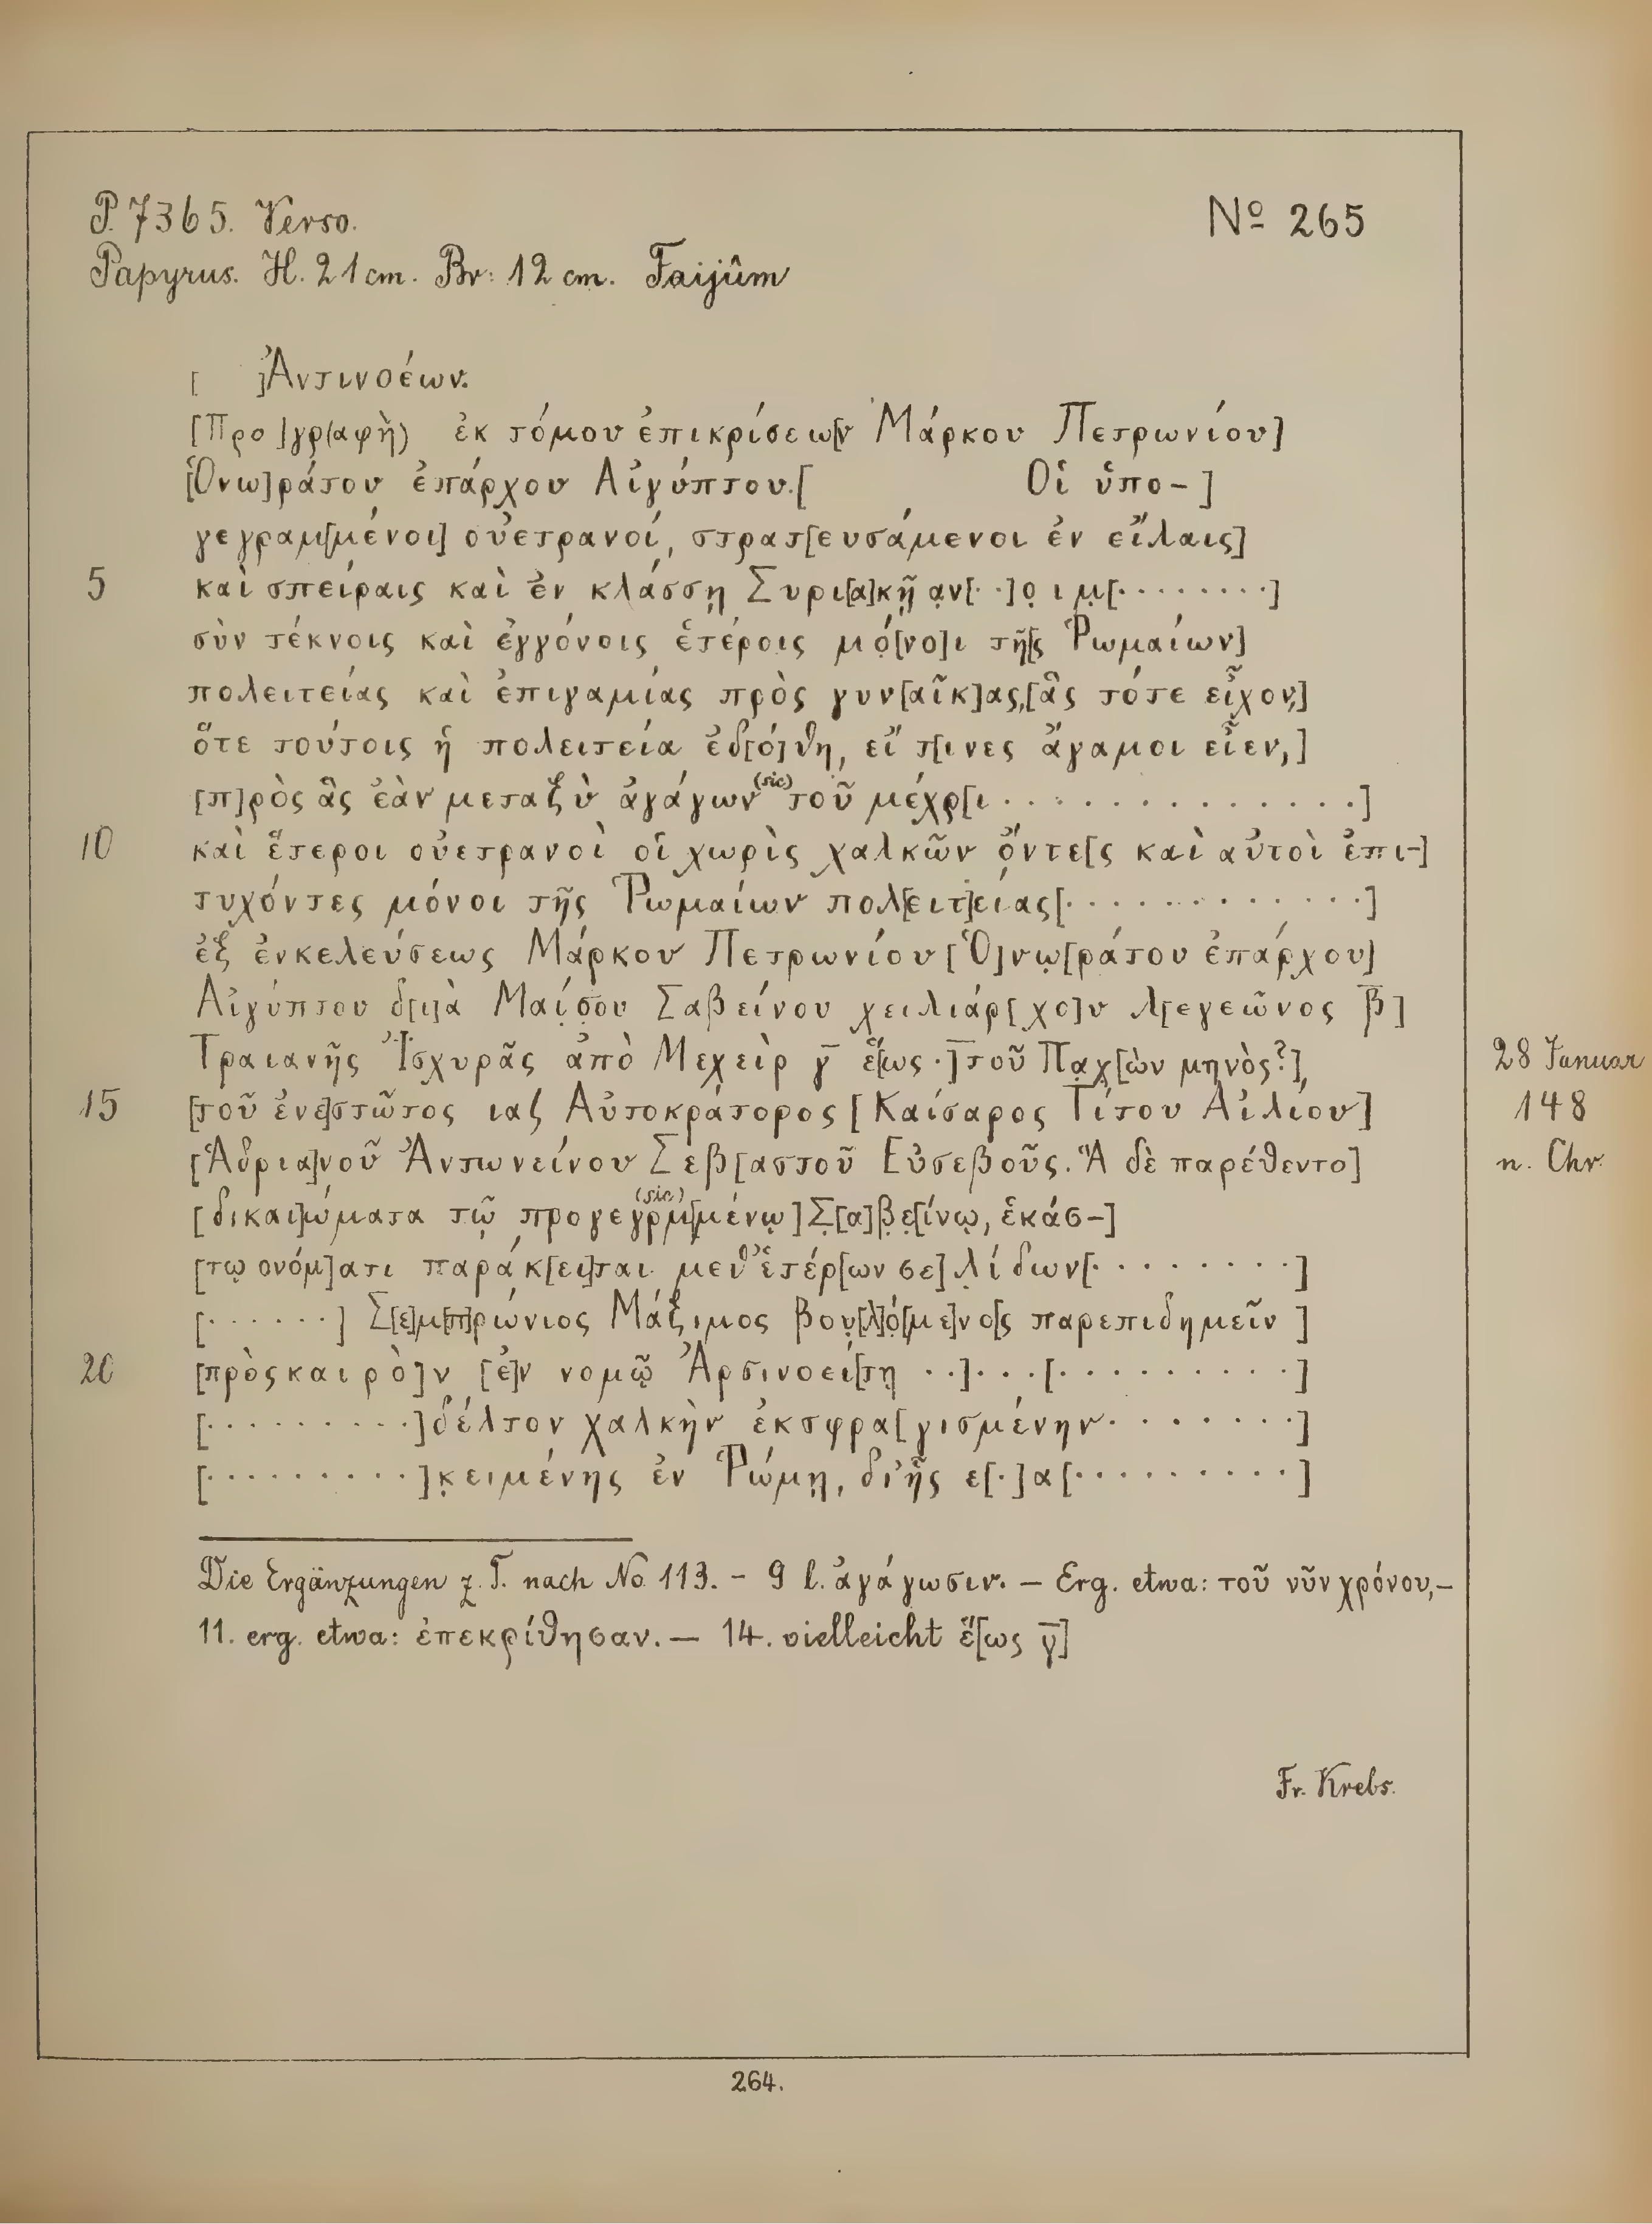 P. 7365. Verso.
Nº 265
Papyrus. H. 21 cm. Br: 12 cm. Faijûm
[ ]Ἀντινοέων.
[Προ]γρ(αφὴ) ἐκ τόμου ἐπικρίσεω[ν Μάρκου Πετρωνίου]
[Ὁνω]ράτου ἐπάρχου Αἰγύπτου.[ Οἱ ὑπο-]
γεγραμ[μένοι] οὐετρανοί, στρατ[ευσάμενοι ἐν εἴλαις]
5 καὶ σπείραις καὶ ἐν κλάσσῃ Συρι[α]κῇ α̣ν[··]ο̣ ι μ̣[········]
σὺν τέκνοις καὶ ἐγγόνοις ἑτέροις μό̣[νο]ι τῆ[ς Ῥωμαίων]
πολειτείας καὶ ἐπιγαμίας πρὸς γυν[αῖκ]ας,[ἃς τότε εἶχον,]
ὅτε τούτοις ἡ πολειτεία ἐδ[ό]θη, εἴ τ[ινες ἄγαμοι εἶεν,]
[π]ρὸς ἃς ἐὰν μεταξὺ ἀγάγων (sic) τοῦ μέχρ[ι ··············]
10 καὶ ἕτεροι οὐετρανοὶ οἱ χωρὶς χαλκῶν ὄντε[ς καὶ αὐτοὶ ἐπι-]
τυχόντες μόνοι τῆς Ῥωμαίων πολ[ειτ]είας[············]
ἐξ ἐνκελεύσεως Μάρκου Πετρωνίου [Ὁ]νω̣[ράτου ἐπάρχου]
Αἰγύπτου δ[ι]ὰ Μαί̣σ̣ου Σαβείνου χειλιάρ[χο]υ λ[εγεῶνος β̅]
Τραιανῆς Ἰσχυρᾶς ἀπὸ Μεχεὶρ γ̅ ἕ[ως ·]̅τοῦ Πα̣χ̣[ὼν μηνὸς?],
28 Januar
15 [τοῦ ἐνε]στῶτος ιαʃ Αὐτοκράτορος [Καίσαρος Τίτου Αἰλίου]
148
[Ἁδρια]νοῦ Ἀντωνείνου Σεβ[αστοῦ Εὐσεβοῦς. Ἃ δὲ παρέθεντο]
n. Chr.
[δικαι]ώματα τῷ προγεγρμ[μένῳ] (sic) Σ̣[α]β̣ε̣[ίνῳ, ἑκάσ-]
[τῳ ονόμ]ατι παράκ[ει]ται μεθ' ἑτέρ[ων σε]λ̣ί̣δων[·········]
[······] Σ[ε]μ[π]ρώνιος Μάξιμος βου̣[λ]ό̣[με]νο[ς παρεπιδημεῖν ]
20 [πρὸς καιρὸ]ν [ἐ]ν νομῷ Ἀρσινοεί[τῃ ··]···[··········]
[·········]δέλτον χαλκὴν ἐκσφρα[γισμένην ········]
[·········]κ̣ειμένης ἐν Ῥώμῃ, δι' ἧς ε[·]α[··········]
Die Ergänzungen z. T. nach No 113. – 9 l. ἀγάγωσιν. – Erg. etwa: τοῦ νῦν χρόνου, –
11. erg. etwa: ἐπεκρίθησαν. – 14. vielleicht ἕ[ως γ̅]
Fr. Krebs.
264.